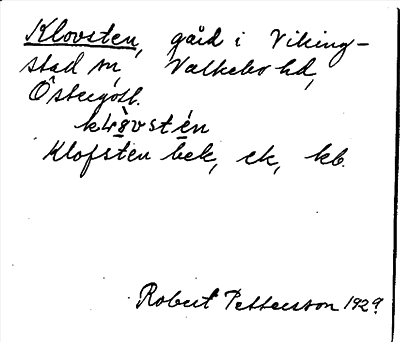 Klovsten, gård i Viking-
stad sn, Valkebo hd,
Östergötl.
Klofsten bek, ek, kb.
Robert Pettersson 1929